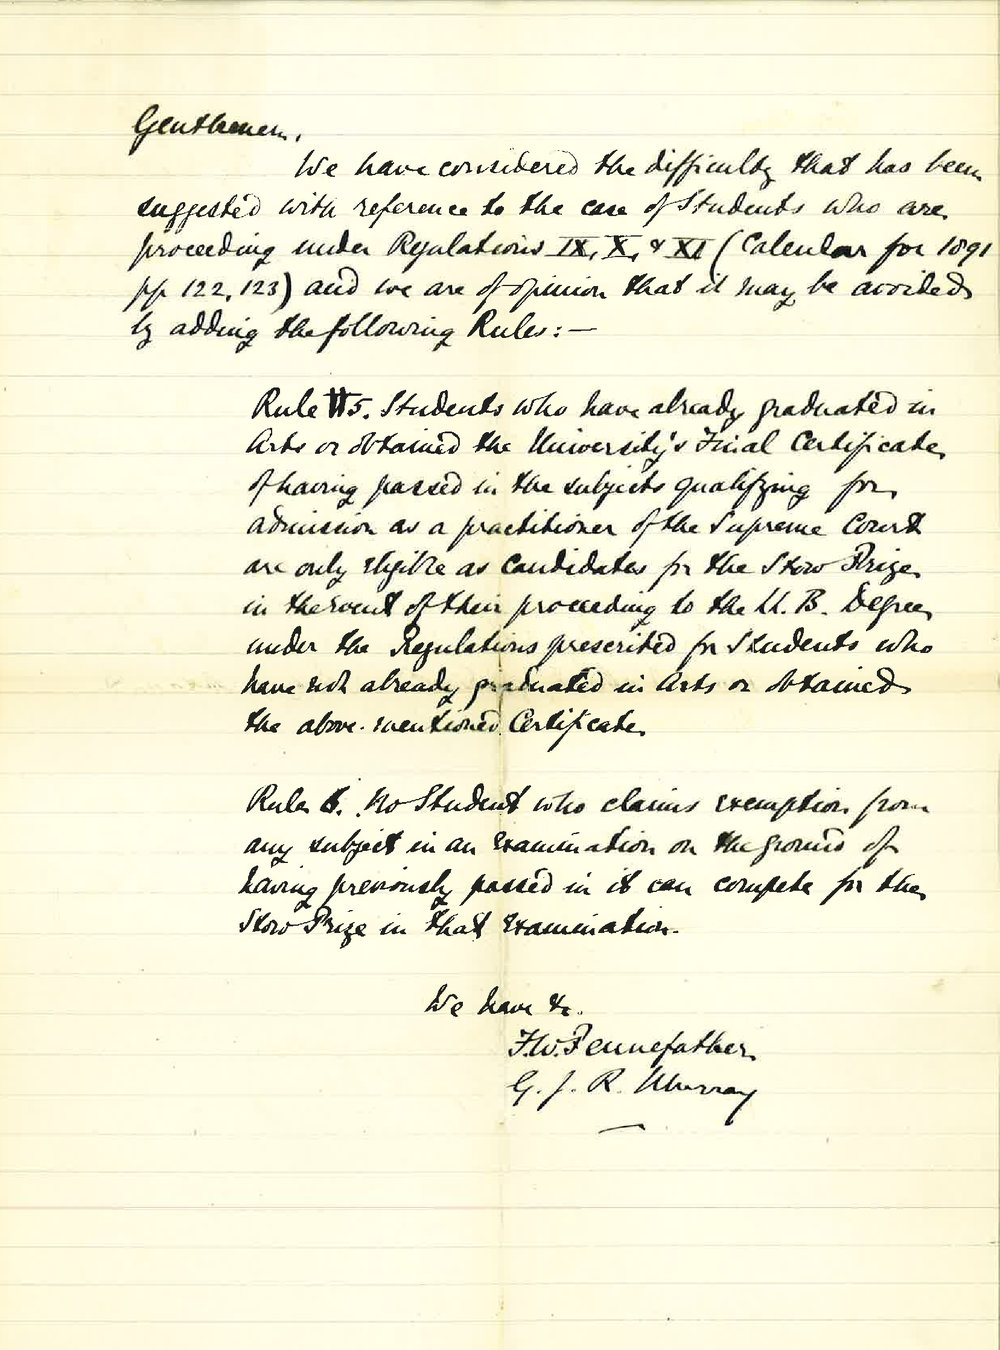 Gentlemen,
We have considered the difficulty that has been
suggested with reference to the case of Students who are
proceeding under Regulations IX, X, & XI (Calendar for 1891
pp 122, 123) and we are of opinion that it may be avoided
by adding the following Rules:—
Rule 5. Students who have already graduated in
Arts or obtained the University's Final Certificate
of having passed in the subjects qualifying for
admission as a practitioner of the Supreme Court
are only eligible as candidates for the Stow Prize
in the event of their proceeding to the Ll. B. Degree
under the Regulations prescribed for Students who
have not already graduated in Arts or obtained
the above-mentioned Certificate.
Rule 6. No Student who claims exemption from
any subject in an Examination on the ground of
having previously passed in it can compete for the
Stow Prize in that Examination.
We have &c.
F.W. Pennefather
G. J. R. Murray